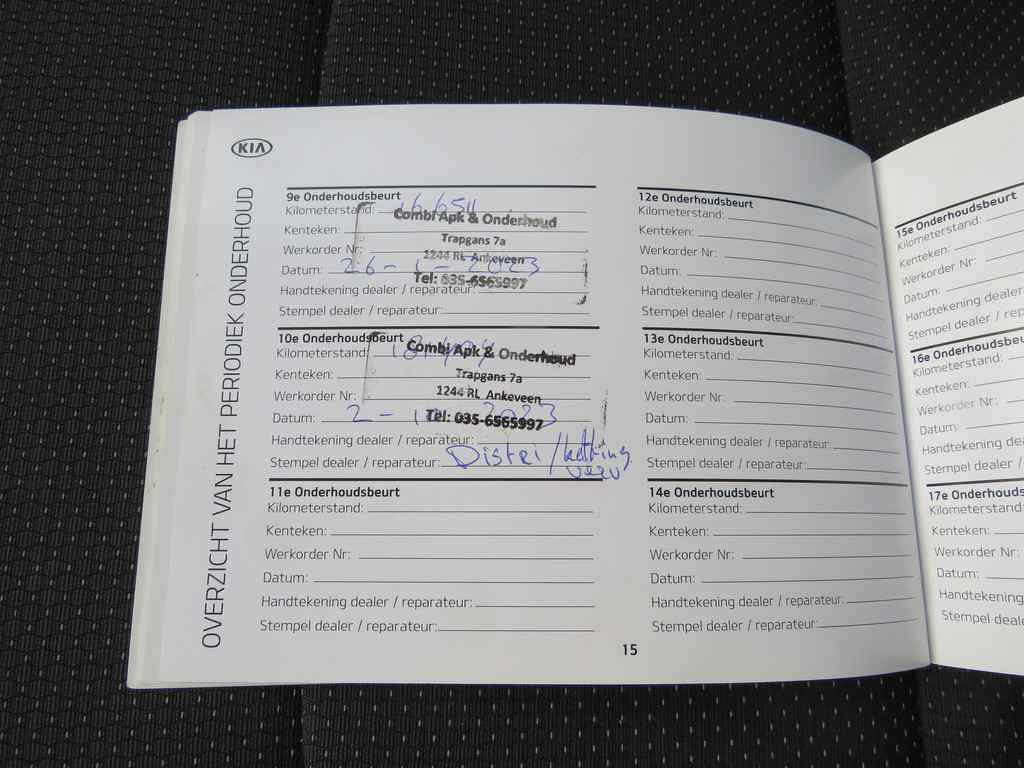 KIA
OVERZICHT VAN HET PERIODIEK ONDERHOUD
9e Onderhoudsbeurt
Kilometerstand: 16.6511
Combi Apk & Onderhoud
Kenteken:
Trapgans 7a
Werkorder Nr:
1244 RL Ankeveen
Datum: 26-1-2023
Tel: 035-6565997
Handtekening dealer / reparateur:
Stempel dealer / reparateur:
10e Onderhoudsbeurt
Kilometerstand:
Combi Apk & Onderhoud
Kenteken:
Trapgans 7a
Werkorder Nr:
1244 RL Ankeveen
Datum: 2-10-2023
Tel: 035-6565997
Handtekening dealer / reparateur:
Stempel dealer / reparateur: Distri/ketting
verv
11e Onderhoudsbeurt
Kilometerstand:
Kenteken:
Werkorder Nr:
Datum:
Handtekening dealer / reparateur:
Stempel dealer / reparateur:
12e Onderhoudsbeurt
Kilometerstand:
Kenteken:
Werkorder Nr:
Datum:
Handtekening dealer / reparateur:
Stempel dealer / reparateur:
13e Onderhoudsbeurt
Kilometerstand:
Kenteken:
Werkorder Nr:
Datum:
Handtekening dealer / reparateur:
Stempel dealer / reparateur:
14e Onderhoudsbeurt
Kilometerstand:
Kenteken:
Werkorder Nr:
Datum:
Handtekening dealer / reparateur:
Stempel dealer / reparateur:
15
15e Onderhoudsbeurt
Kilometerstand:
Kenteken:
Werkorder Nr:
Datum:
Handtekening dealer
Stempel dealer / rep
16e Onderhoudsbeu
Kilometerstand:
Kenteken:
Werkorder Nr:
Datum:
Handtekening deale
Stempel dealer / re
17e Onderhoudsb
Kilometerstand:
Kenteken:
Werkorder Nr:
Datum:
Handtekening
Stempel deale